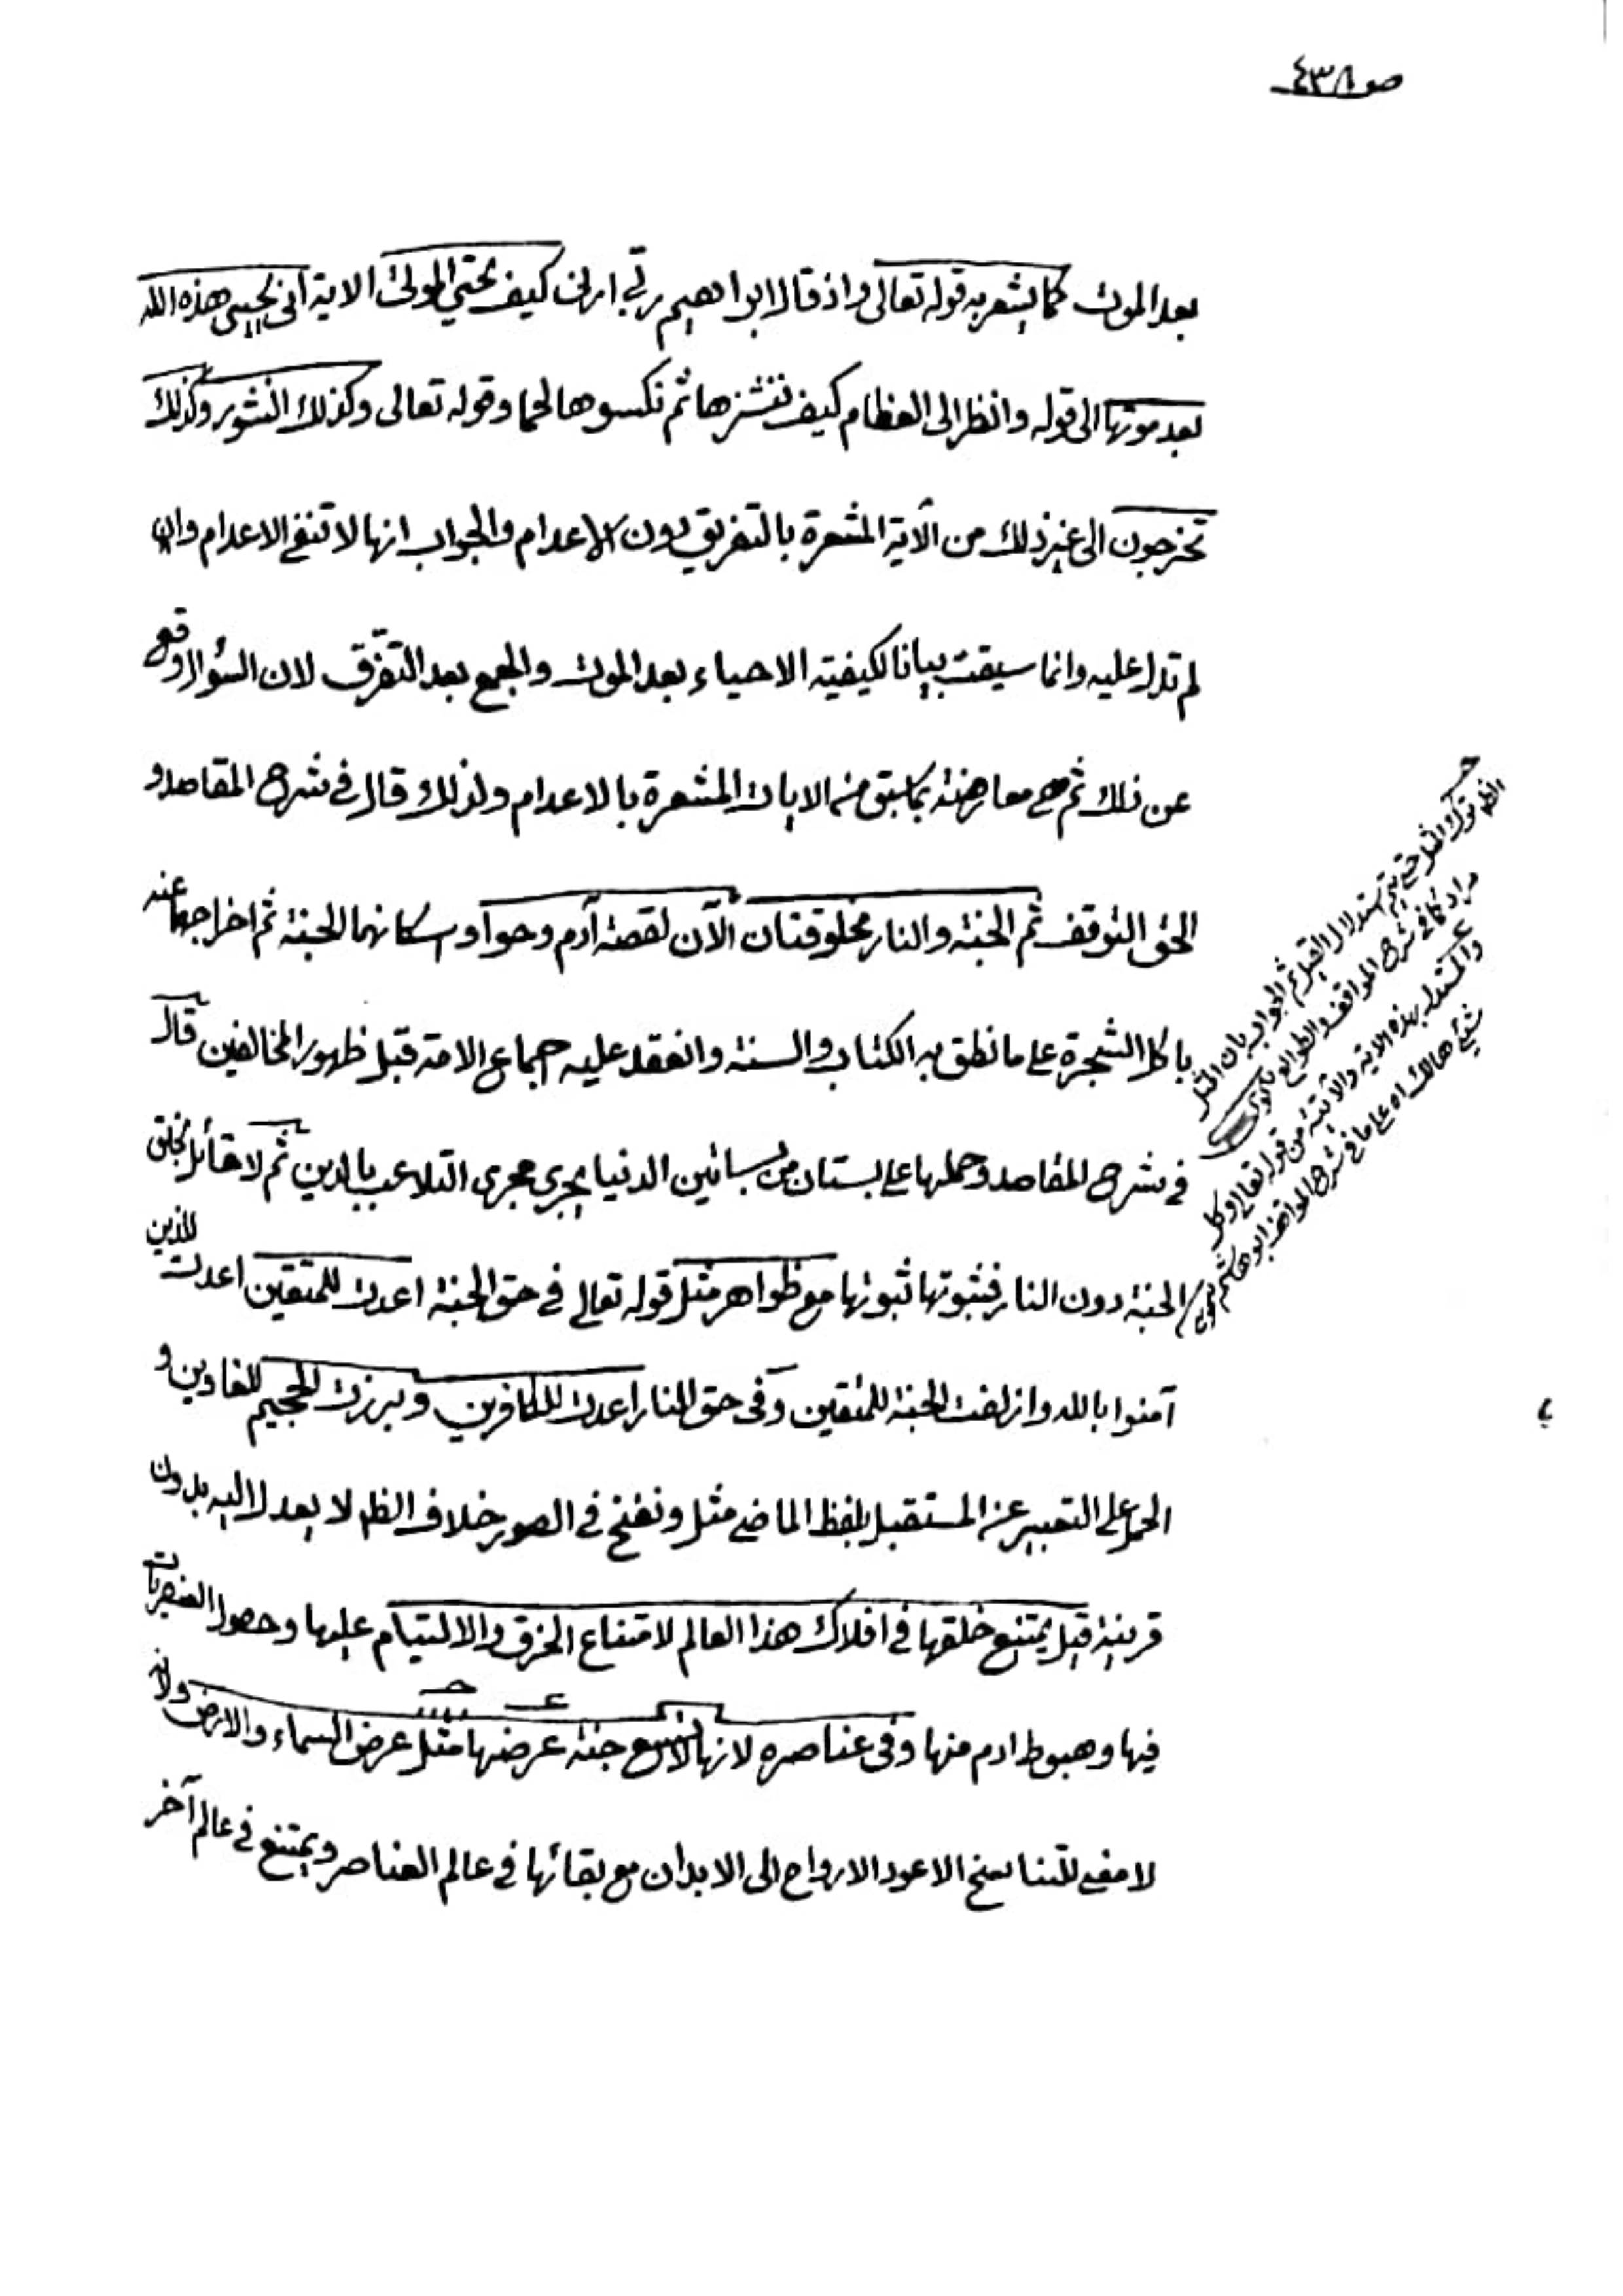 صـ ٤٣٨
بعد الموت كما يشعر به قوله تعالى واذ قال ابراهيم ربّي ارنى كيف تحيي الموتى الاية أنى يحيي هذه الله
بعد موتها الى قوله وانظر الى العظام كيف ننشزها ثم نكسوها لحما وقوله تعالى وكذلك النشور وكذلك
تخرجون الى غير ذلك من الآية المشعرة بالتفريق دون الاعدام والجواب انها لا تنفى الاعدام وان
لم تدل عليه وانما سيقت بيانا لكيفية الاحياء بعد الموت والجمع بعد التفرّق لان السؤال وقع
عن ذلك ثم هى معارضة بما سبق من الايات المشعرة بالاعدام ولذلك قال فى شرح المقاصد و
الحق التوقف ثم الجنة والنار مخلوقتان الآن لقصة آدم وحوا واسكانهما الجنة ثم اخراجهما عنه
باكل الشجرة على ما نطق به الكتاب والسنة وانعقد عليه اجماع الامة قبل ظهور المخالفين قال
فى شرح المقاصد وحملها على بستان من بساتين الدنيا يجرى مجرى التلاعب بالدين ثم لا قائل بخلق
الجنة دون النار فثبوتها ثبوتها مع ظواهر مثل قوله تعالى فى حق الجنة اعدت للمتقين اعدت للذين
آمنوا بالله وازلفت الجنة للمتقين وفى حق النار اعدت للكافرين وبرزت الجحيم للغاوين و
الحمل على التعبير عن المستقبل بلفظ الماضى مثل ونفخ فى الصور خلاف الظ لا يعدل اليه بدون
قرينة قيل يمتنع خلقها فى افلاك هذا العالم لامتناع الخرق والالتيام عليها وحصول العنصريات
فيها وهبوط ادم منها وفى عناصره لانها لا تسع جنة عرضها مثل عرض السماء والارض ولانه
لا معنى للتناسخ الا عود الارواح الى الابدان مع بقائها فى عالم العناصر ويمتنع فى عالم آخر
مراد كما فى شرح المواقف والطوالع
والمستدل بهذه الاية والآتية من قوله تعالى وكل
شيئ هالك اه على ما فى شرح المواقف ابو هاشم